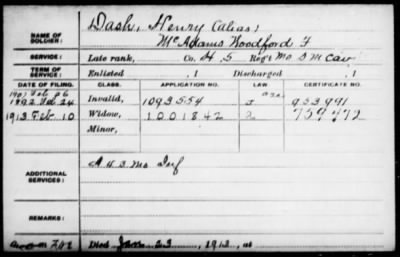 NAME OF SOLDIER:
Dash, Henry (alias)
McAdams Woodford F
SERVICE:
Late rank, Co. H, 5 Reg't Mo S M Cav
TERM OF SERVICE:
Enlisted , 1 Discharged , 1
DATE OF FILING. CLASS. APPLICATION NO. LAW CERTIFICATE NO.
1907 Feb 26
1892 Feb 24 Invalid, 1093554 953991
1913 Feb. 10 Widow, 1001842 2 759472
Minor,
ADDITIONAL SERVICES:
A 43 Mo Inf
REMARKS:
Died Jan 23, 1913, at